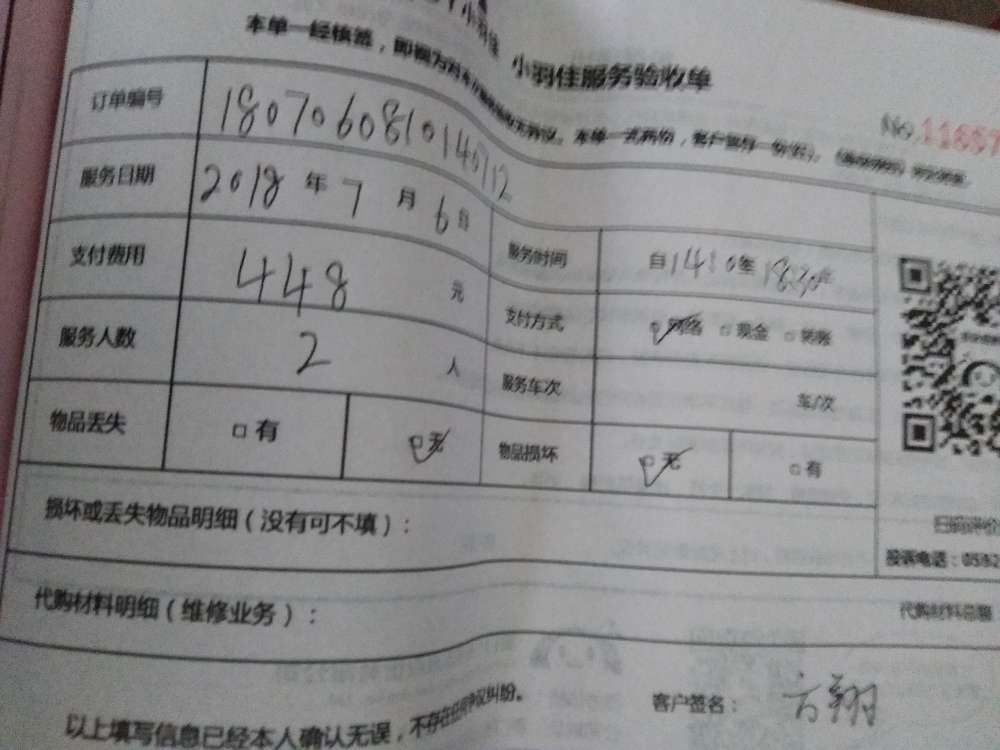 小羽佳服务验收单
本单一经核签，即视为
本单一式两份，客户留存一份
No. 11657
订单编号 1807060810140712
服务日期 2018 年 7 月 6 日
服务时间 自 14:10 至 18:30
支付费用 448 元
支付方式 网络 □ 现金 □ 转账
服务人数 2 人
服务车次 车/次
物品丢失 □ 有 □ 无
物品损坏 □ 无 □ 有
损坏或丢失物品明细（没有可不填）：
扫码评价
投诉电话：0592
代购材料明细（维修业务）：
代购材料总额
客户签名： 方翔
以上填写信息已经本人确认无误，不存在任何争议纠纷。